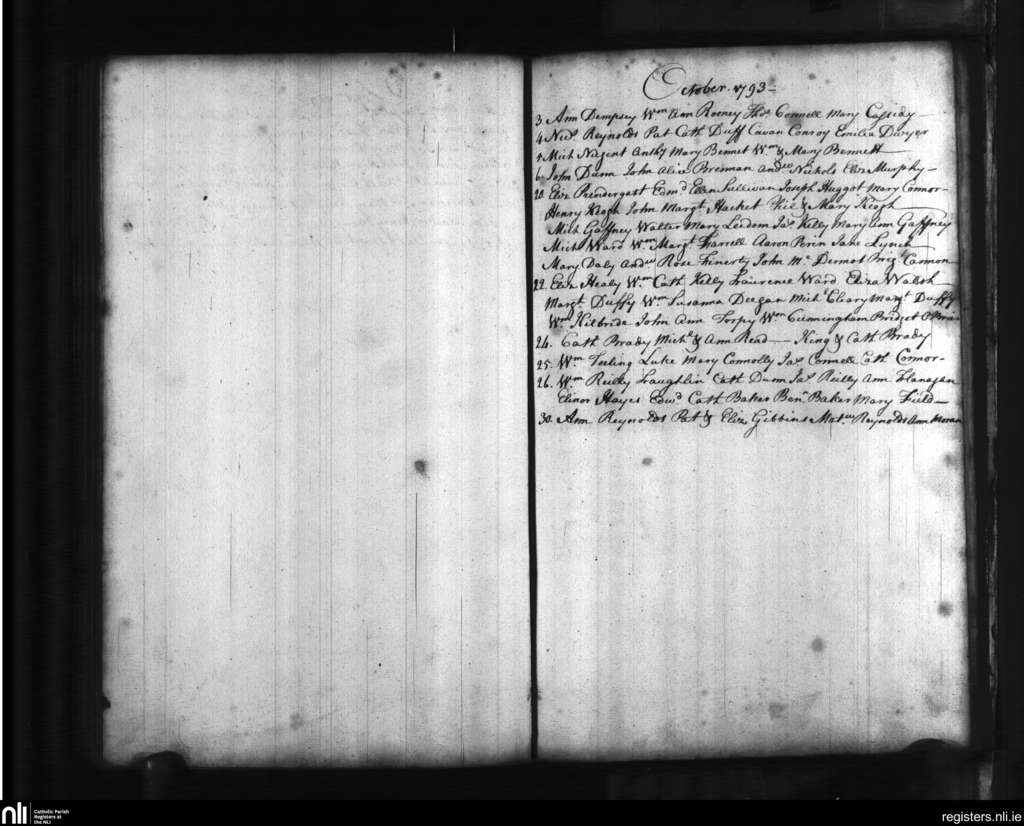 October. 1793
3. Ann Dempsey Wm Ann Rooney Thos Connell Mary Cassidy
4 Nics Reynolds Pat Cath Duff Cavan Conroy Emilia Dwyer
5 Mich Nugent Anthy Mary Bennet Wm & Mary Bennett
6. John Dunn John Alice Brennan Andw Nichols Eliz Murphy
20. Eliz Prendergast Edmd Ellen Sullivan Joseph Haggot Mary Connor
Henry Keogh John Margt Hacket & Mary Keogh
Mich Gaffney Walter Mary Leedom Jas Kelly Mary Ann Gaffney
Mich Ward Wm Margt Farrell Aaron Perin Jane Lynch
Mary Daly Andw Rose Finerty John Mc Dermot Cannon
22. Eliz Healy Wm Cath Kelly Laurence Ward Eliza Walsh
Margt Duffy Wm Susanna Deegan Michl Cleary Margt Duffy
Wm Kilbride John Ann Torpy Wm Cunningham Bridget
24. Cath Brady Michl & Ann Read — King & Cath Brady
25. Wm Teeling Luke Mary Connolly Jas Connell Cath Connor
26. Wm Reilly Laughlin Cath Dunn Jas Reilly Ann Flanagan
Elinor Hayes Edwd Cath Baker Benn Baker Mary Field
30. Ann Reynolds Pat & Eliz Gibbins Matw Reynolds Ann Moran
nli
Catholic Parish
Registers at
the NLI
registers.nli.ie